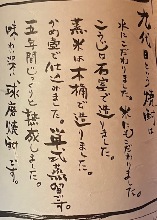 九代目という焼酎は
水にこだわりました。米にもこだわりました。
こうじは石室で造りました。
蒸米は木桶で造りました。
かめ壺で仕込みました。単式蒸留です。
五年間じっくりと熟成しました。
味わい深い球磨焼酎です。